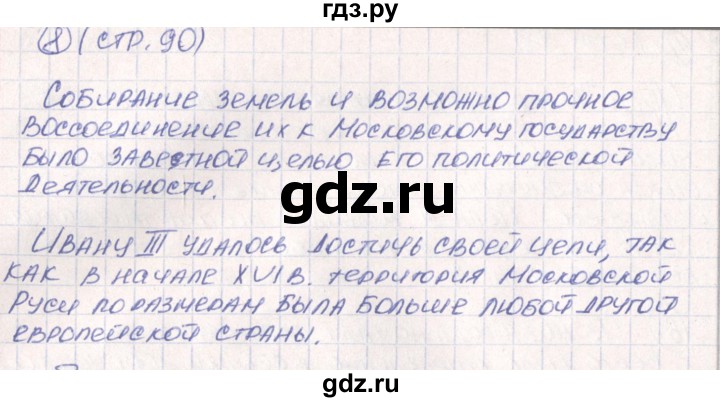 гдз.ру
(8) (стр. 90)
Собирание земель и возможно прочное
воссоединение их к Московскому государству
было заветной целью его политической
деятельности.
gdz.ru
Ивану III удалось достичь своей цели, так
как в начале XVI в. территория Московской
Руси по размерам была больше любой другой
европейской страны.
gdz.ru